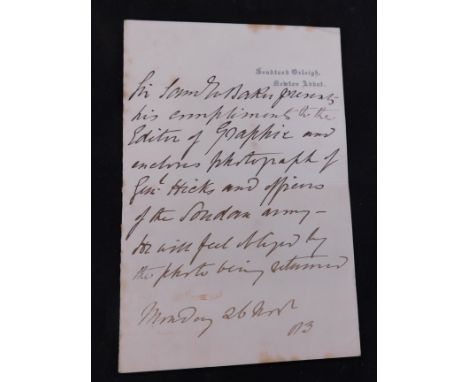 Sandford Orleigh,
Newton Abbot.
Sir Sam W Baker presents
his compliments to the
Editor of Graphic and
encloses photograph of
Genl Hicks and officers
of the Soudan army—
he will feel obliged by
the photo being returned
Monday 26 Novr
83